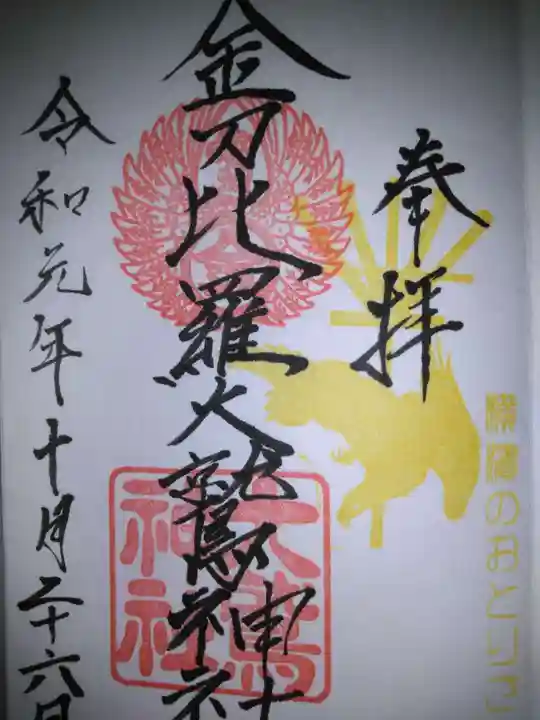 横濱のおとりさ
奉拝
金刀比羅大鷲神社
令和元年十月二十六日